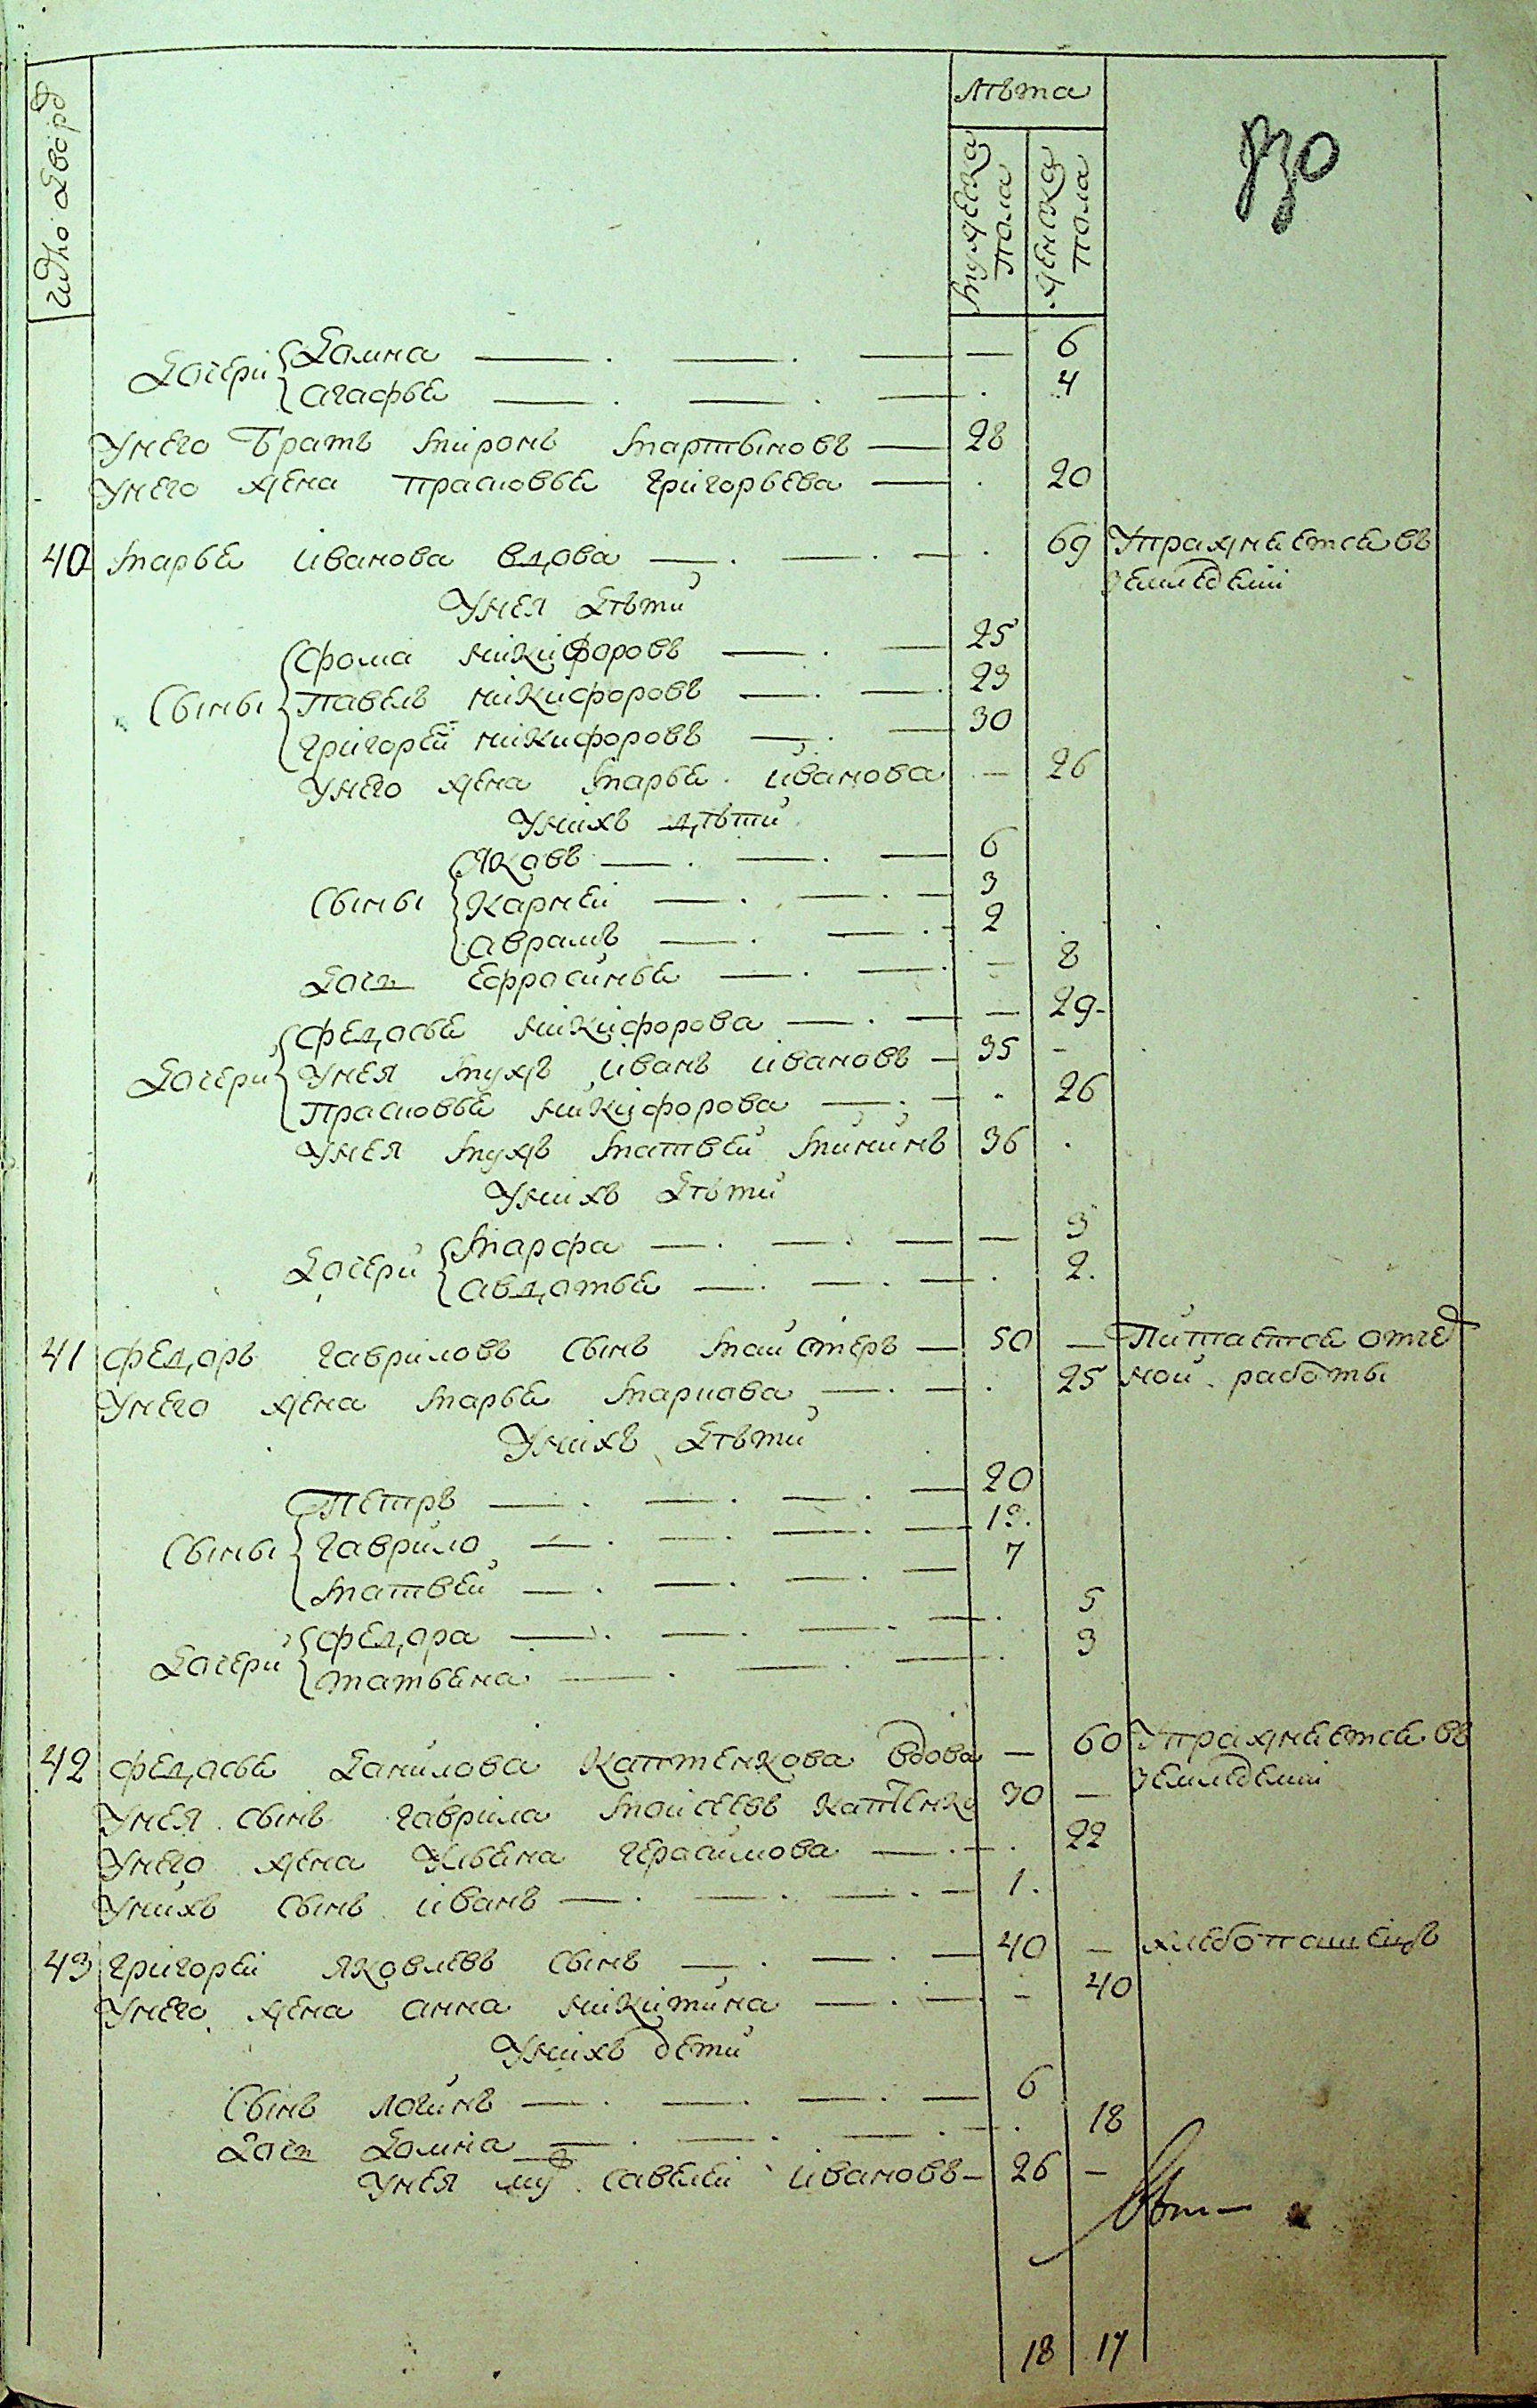 число дворо
лѣта
мужеска пола
женска пола
730
дочери домна — — — — 6
агафье — — — . 4
унего братъ миронъ мартыновъ — 28
унего жена прасковье григорьева — . 20
40 марье иванова вдова — . — . — . 69 упражнѣетсе въ
земледелiи
унея дѣти
фома никифоровъ — . — 25
сыны павелъ никифоровъ — . — . 23
григорей никифоровъ — . — 30
унего жена марье иванова — 26
унихъ дѣти
яковъ — . — . — 6
сыны карней — . — . — 3
аврамъ — . — . — 2
дочь ефросинье — . — . — 8
федосье никифорова — . — — 29
дочери унея мужъ иванъ ивановъ — 35 —
прасковье никифорова — . — . 26
унея мужъ матвей мининъ 36 .
унихъ дѣти
дочери марфа — . — . — — 3
авдотье — . — . — . 2.
41 федоръ гавриловъ сынъ майстеръ — 50 — питаетсе отчед
ной работы
унего жена марье маркова — . — . 25
унихъ дѣти
петръ — . — . — . — 20
сыны гаврило — . — . — . — 13.
матвей — . — . — . — 7
дочери федора — . — . — . — . 5
татьена — . — . — . 3
42 федосье данилова каптенкова вдова — 60 упражнѣетсе въ
земледелiи
унея сынъ гаврила моисеевъ каптенко 30 —
унего жена ульена герасимова — . — . 22
унихъ сынъ иванъ — . — . — . — 1.
43 григорей яковлевъ сынъ — . — . — 40 — хлебопашецъ
унего жена анна никитина — . — . — 40
унихъ дети
сынъ логинъ — . — . — . — 6
дочь домна — . — . — . — . 18
унея му савелей ивановъ — 26 —
18 17